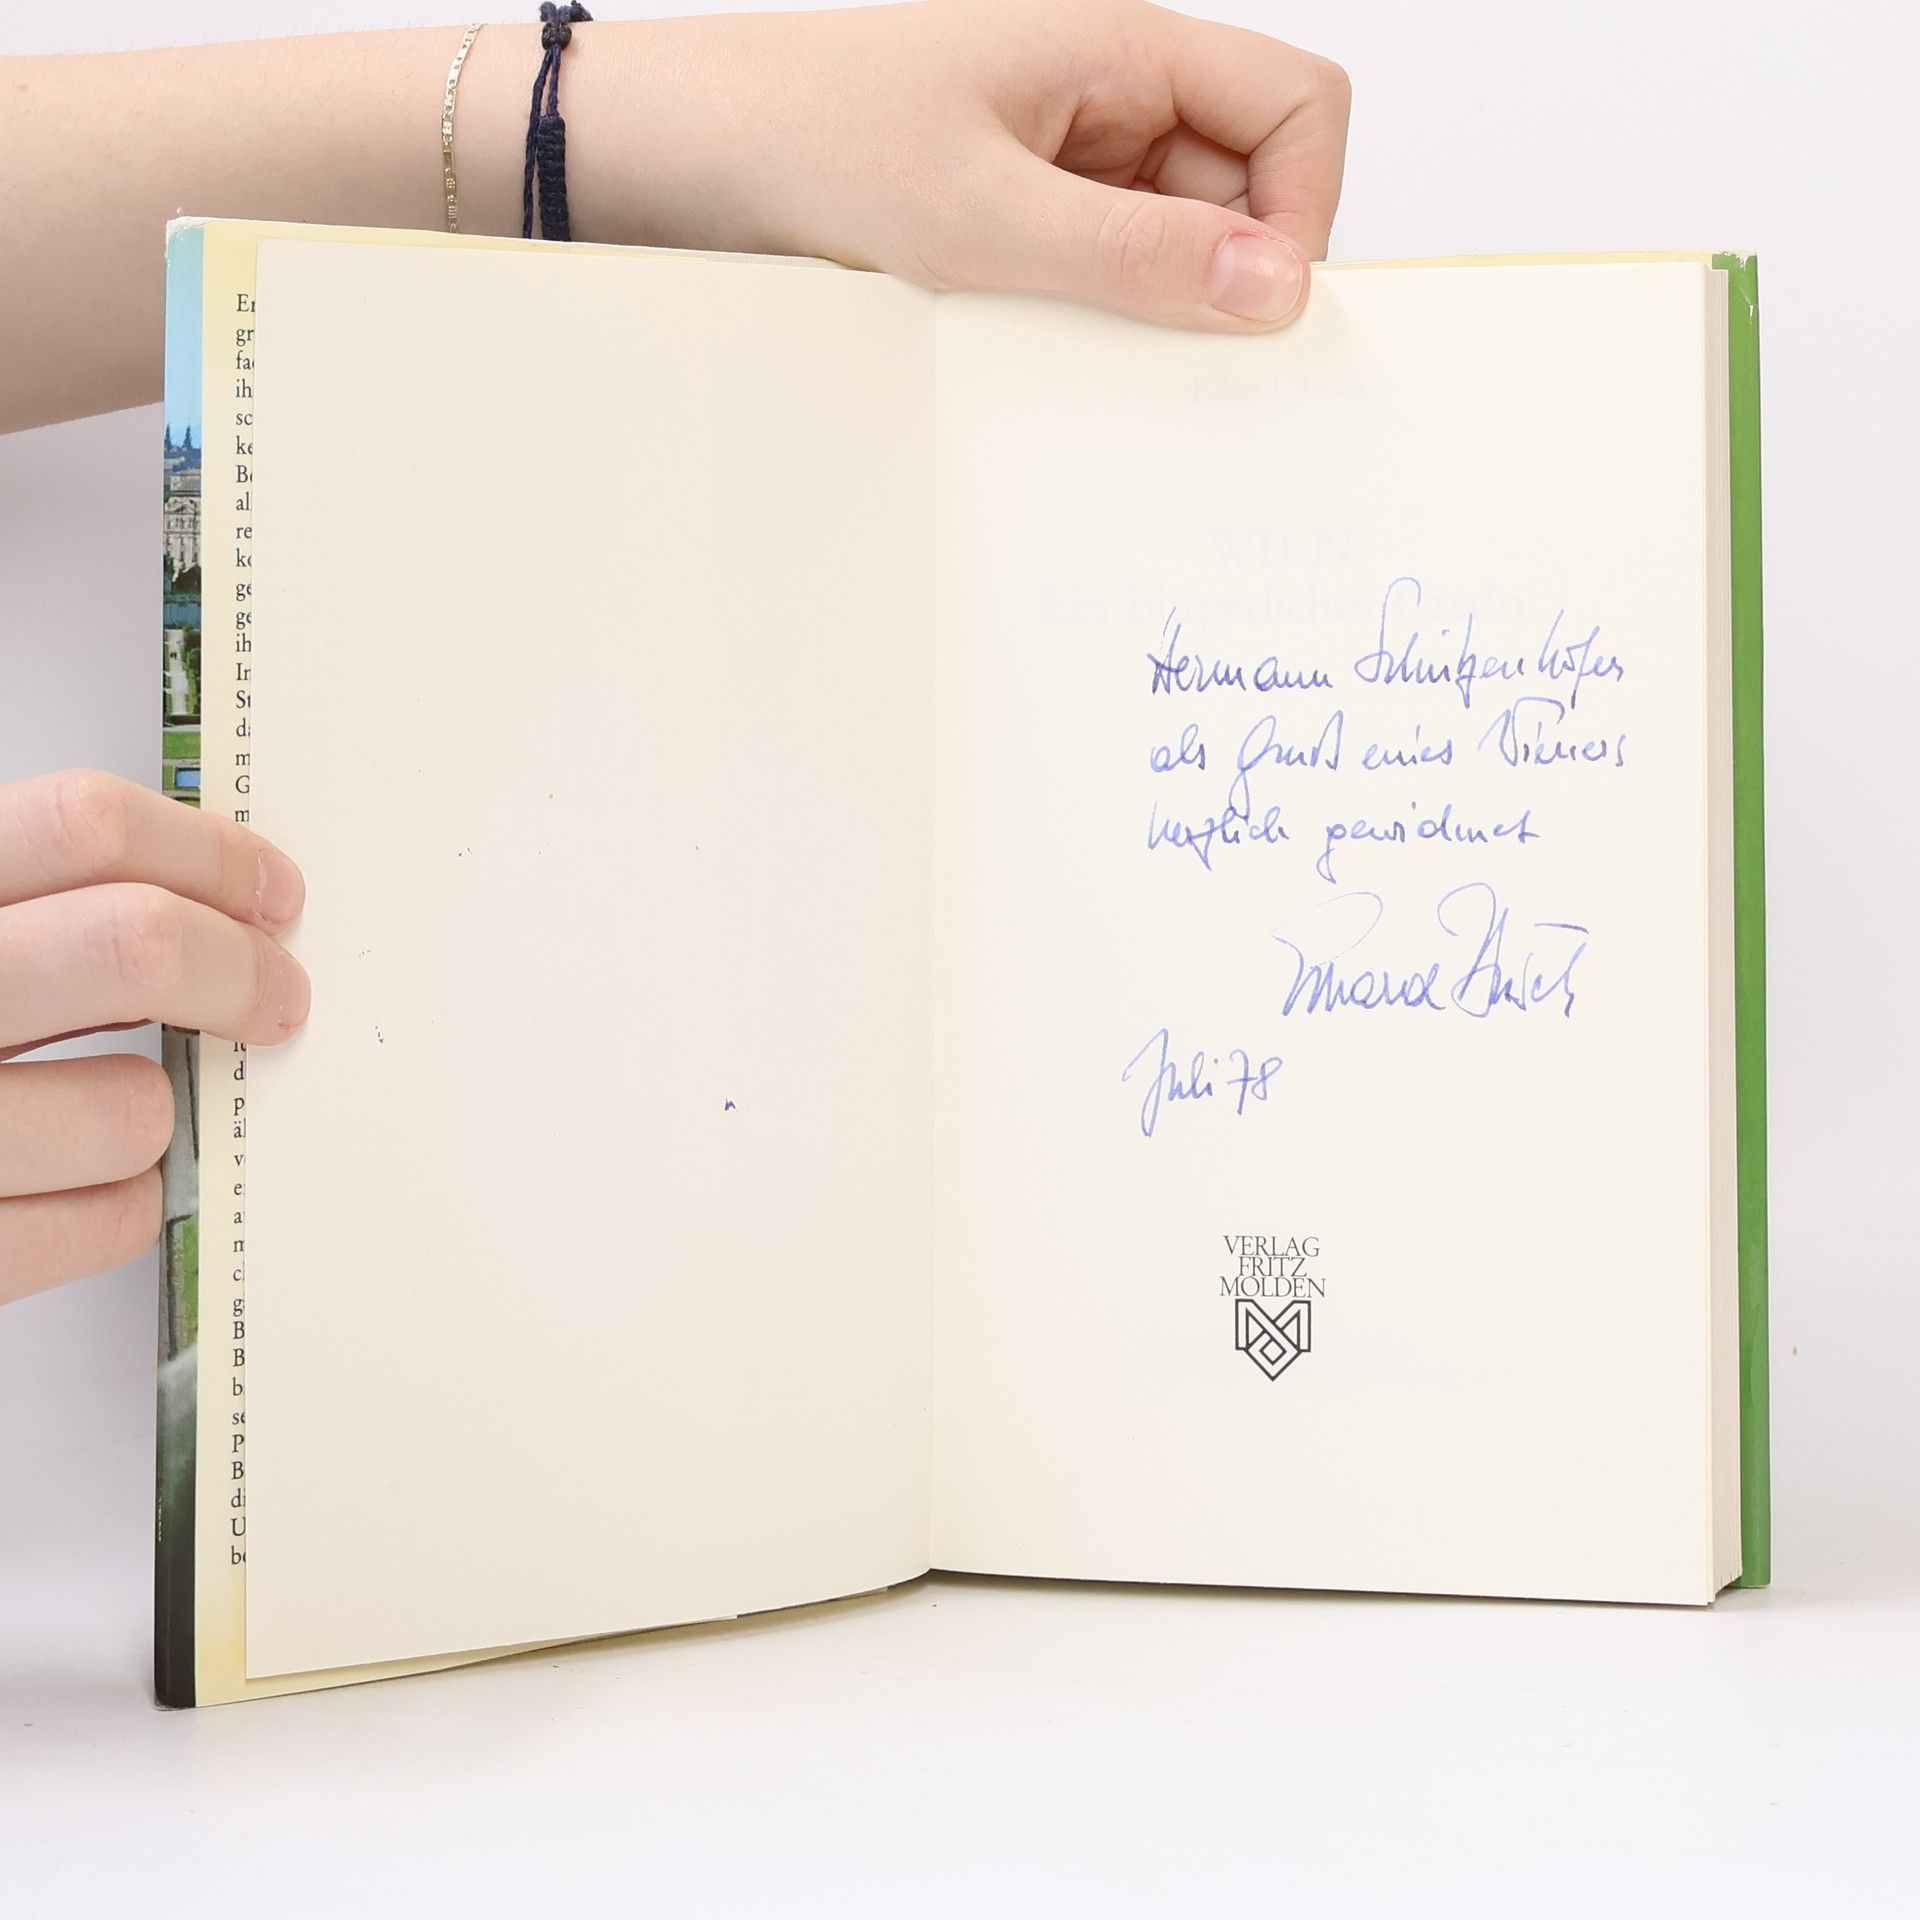 Er
gr
fac
ih
sc
ke
Be
all
re
ko
ge
ge
ih
In
St
da
m
G
m
d
p
äl
v
e
a
m
cl
g
B
B
b
se
P
B
di
U
be
Erhard Busek
WIEN
Ein bürgerliches Credo
Hermann Schützenhöfer
als Gruß eines Wieners
herzlich gewidmet
Erhard Busek
Juli 78
VERLAG
FRITZ
MOLDEN